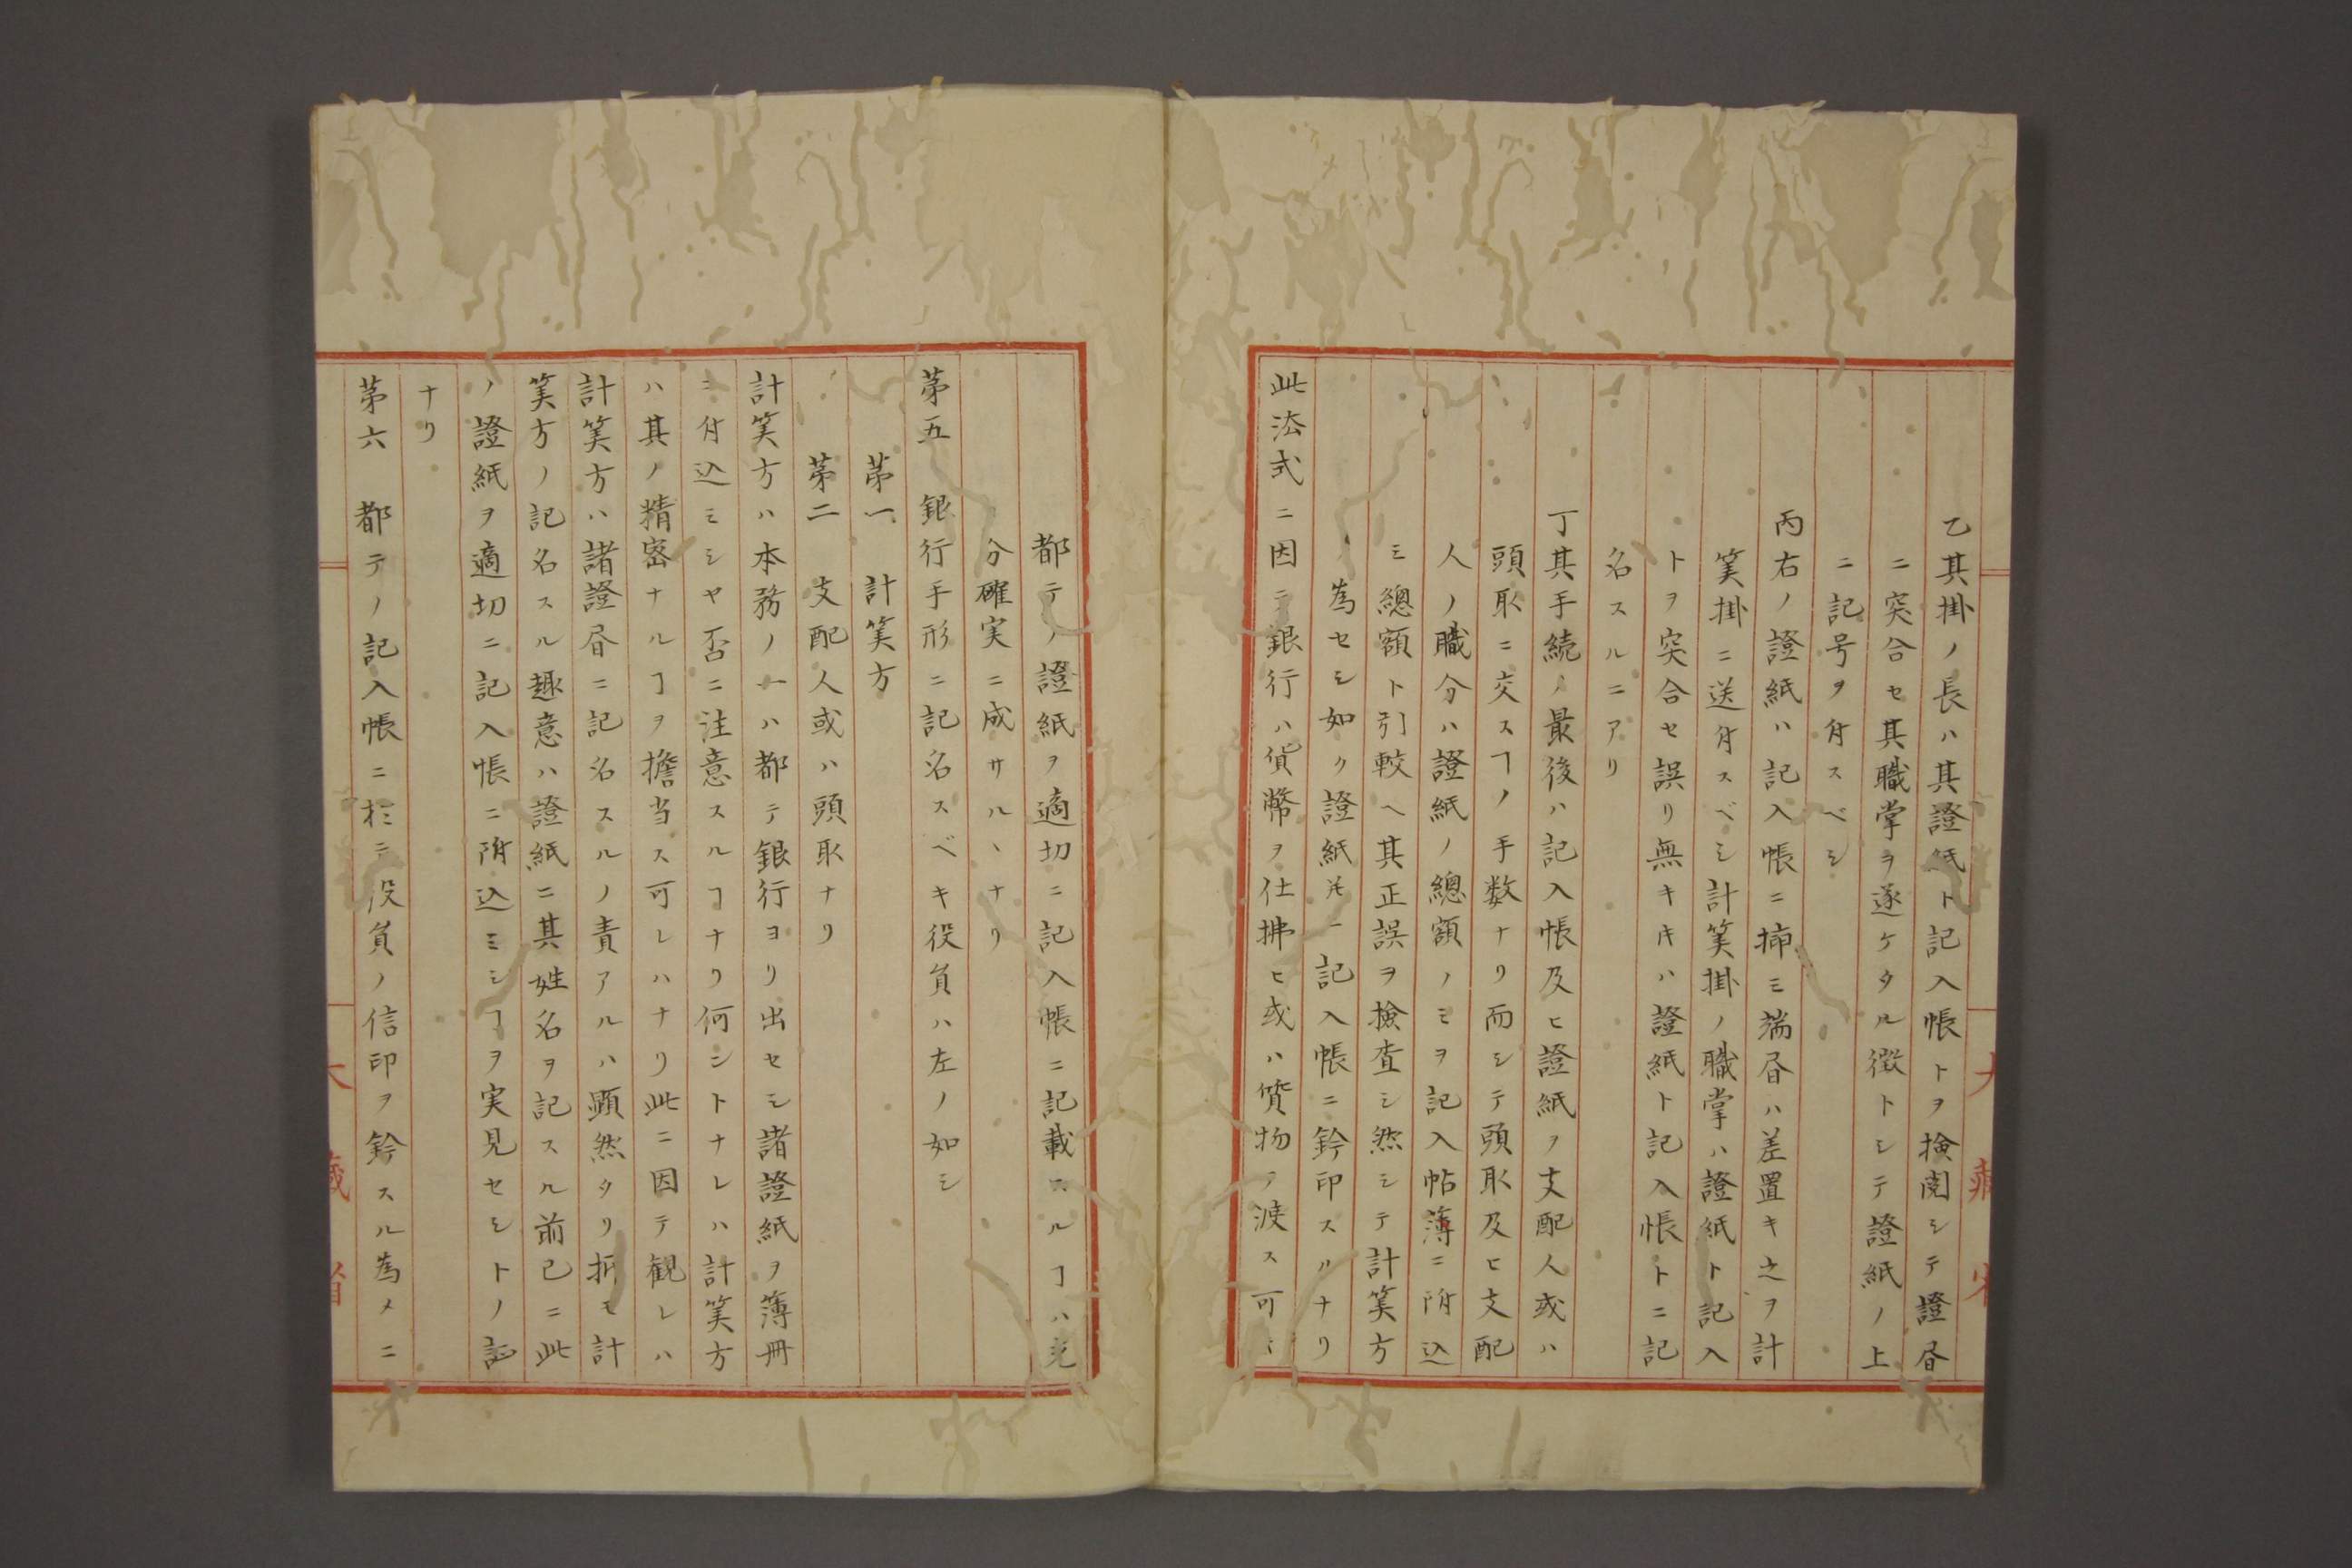 乙其掛ノ長ハ其證紙ト記入帳トヲ撿閲シテ證昏
ニ突合セ其職掌ヲ遂ケタル徴トシテ證紙ノ上
ニ記号ヲ付スベシ
丙右ノ證紙ハ記入帳ニ挿ミ端昏ハ差置キ之ヲ計
筭掛ニ送付スベシ計筭掛ノ職掌ハ證紙ト記入
トヲ突合セ誤リ無キ𪜈ハ證紙ト記入帳トニ記
名スルニアリ
丁其手続ノ最後ハ記入帳及ヒ證紙ヲ支配人或ハ
頭取ニ交スヿノ手数ナリ而シテ頭取及ヒ支配
人ノ職分ハ證紙ノ總額ノミヲ記入帖薄ニ附込
ミ總額ト引較ヘ其正誤ヲ撿査シ然シテ計筭方
ノ為セシ如ク證紙並ニ記入帳ニ鈐印スルナリ
此法式ニ因テ銀行ハ貨幣ヲ仕拂ヒ或ハ質物ヲ渡ス可シ
都テノ證紙ヲ適切ニ記入帳ニ記載スルヿハ充
分確実ニ成サルヽナリ
苐五 銀行手形ニ記名スベキ役負ハ左ノ如シ
苐一 計筭方
苐二 支配人或ハ頭取ナリ
計筭方ハ本務ノ一ハ都テ銀行ヨリ出セシ諸證紙ヲ薄冊
ニ付込ミシヤ否ニ注意スルヿナリ何シトナレハ計筭方
ハ其ノ精密ナルヿヲ擔当ス可レハナリ此ニ因テ観レハ
計筭方ハ諸證昏ニ記名スルノ責アルハ顕然タリ抑モ計
筭方ノ記名スル趣意ハ證紙ニ其姓名ヲ記スル前已ニ此
ノ證紙ヲ適切ニ記入帳ニ附込ミシヿヲ実見セシトノ証
ナリ
苐六 都テノ記入帳ニ於テ役負ノ信印ヲ鈐スル為メニ
大藏省